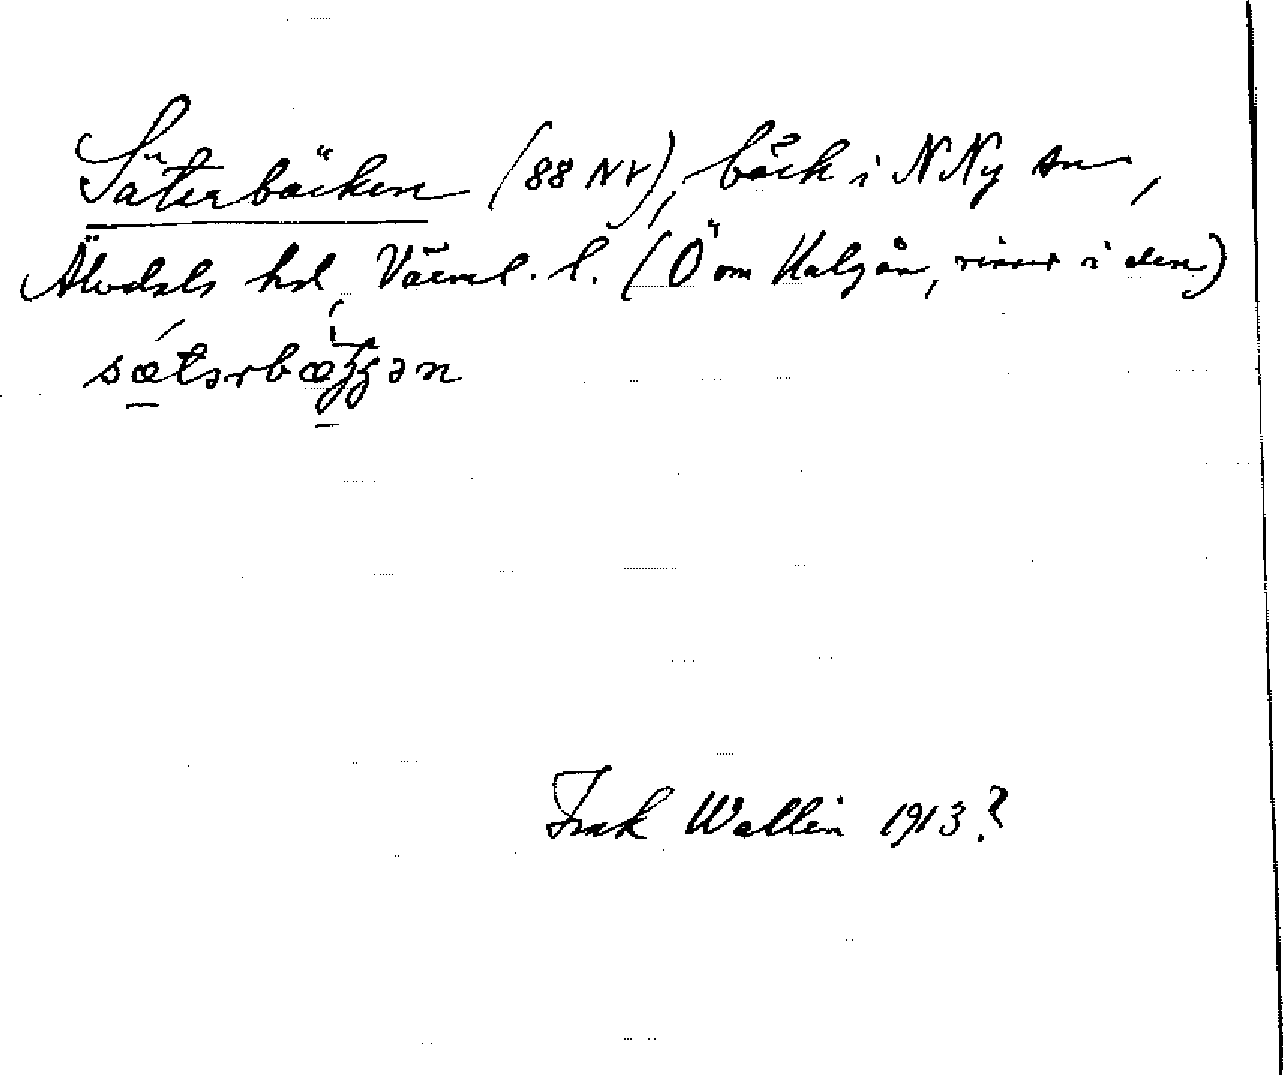 Säterbäcken (88 NV), bäck i N Ny sn,
Älvdals hd, Värml. l. (Ö om Halgån, rinner i den)
sǽtərbæ̀ʒʒən
Isak Wallin 1913?